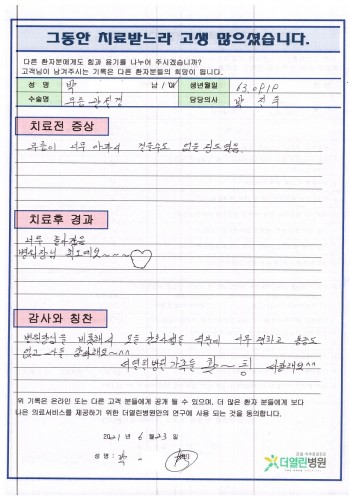 그동안 치료받느라 고생 많으셨습니다.
다른 환자분에게도 힘과 용기를 나누어 주시겠습니까?
고객님이 남겨주시는 기록은 다른 환자분들의 희망이 됩니다.
성 명 박 남 / 여 생년월일 63.0919
수술명 무릎 관절경 담당의사 박진수
치료전 증상
무릎이 너무 아파서 걸을수도 없을 정도였음.
치료후 경과
너무 좋아졌음
병원장님 최고예요~~~♡
감사와 칭찬
병원장님을 비롯해서 모든 간호사님들 덕분에 너무 편하고 통증도
없고 사랑해요~^^
더열린병원 가족들 화~팅 사랑해요^^
위 기록은 온라인 또는 다른 고객 분들에게 공개 될 수 있으며, 더 많은 환자 분들에게 보다
나은 의료서비스를 제공하기 위한 더열린병원만의 연구에 사용 되는 것을 동의합니다.
2021 년 6 월 23 일
성 명 : 박
더열린병원